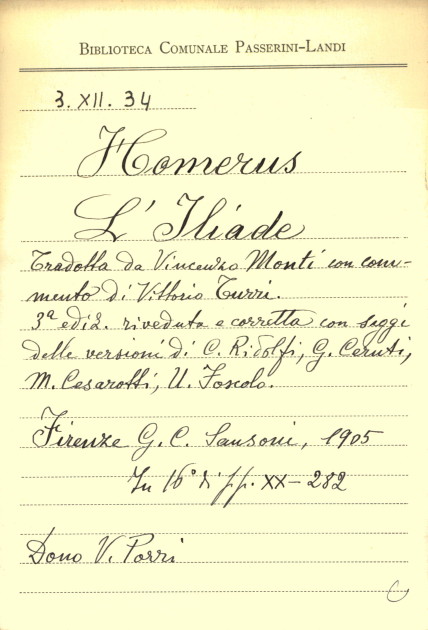 BIBLIOTECA COMUNALE PASSERINI-LANDI
3. XII. 34
Homerus
L' Iliade
Tradotta da Vincenzo Monti con com-
mento di Vittorio Turri.
3ª ediz. riveduta e corretta con saggi
delle versioni di C. Ridolfi, G. Ceruti,
M. Cesarotti, U. Foscolo.
Firenze G. C. Sansoni, 1905
In 16° di pp. XX-282
Dono V. Porri